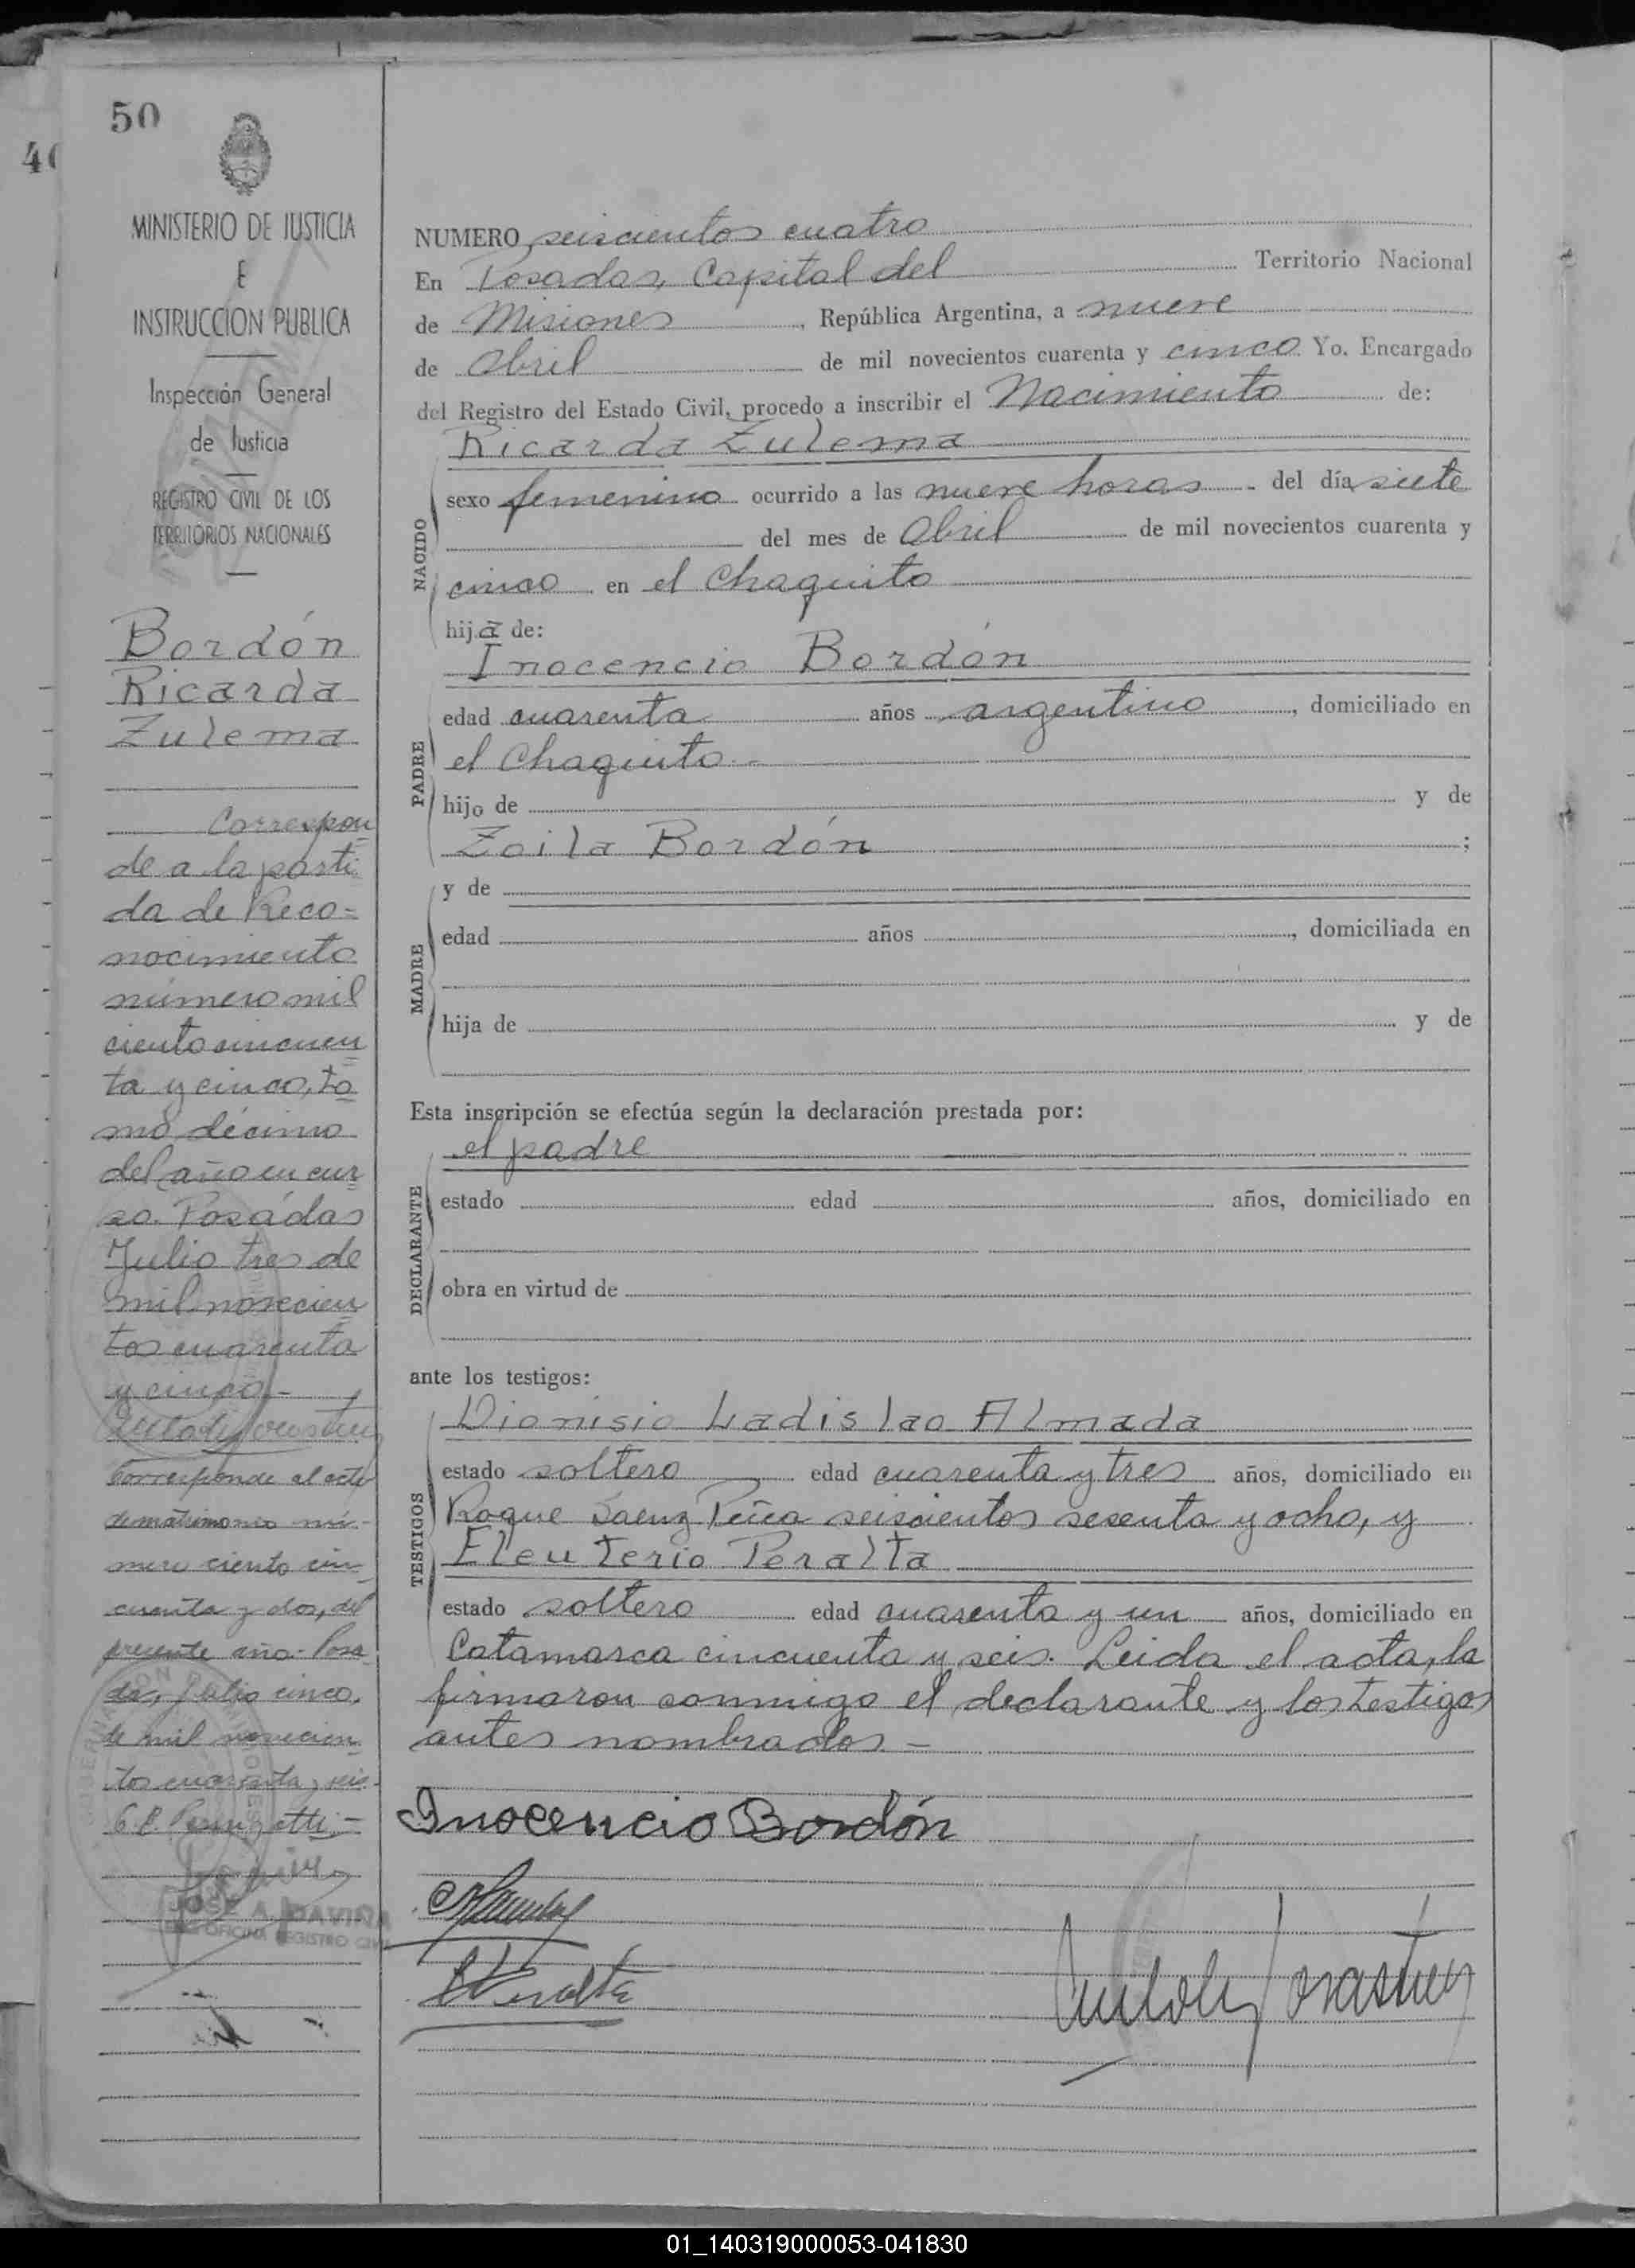 50
MINISTERIO DE JUSTICIA
E
INSTRUCCION PUBLICA
Inspección General
de Justicia
REGISTRO CIVIL DE LOS
TERRITORIOS NACIONALES
Bordón
Ricarda
Zulema
Correspon
de a la parti
da de Reco=
nocimiento
número mil
ciento cincuen
ta y cinco, to
mo décimo
del año en cur
so. Posadas
Julio tres de
mil novecien
tos cuarenta
y cinco.-
Corresponde al acta
de matrimonio nú-
mero ciento cin
cuenta y dos, del
presente año - Posa
das, Julio cinco,
de mil novecien
tos cuarenta y seis.
JOSE A. DAVIÑA
OFICINA REGISTRO CIVIL
NUMERO seiscientos cuatro
En Posadas, Capital del Territorio Nacional
de Misiones, República Argentina, a nueve
de Abril de mil novecientos cuarenta y cinco Yo, Encargado
del Registro del Estado Civil, procedo a inscribir el Nacimiento de:
NACIDO
Ricarda Zulema
sexo femenino ocurrido a las nueve horas del día siete
del mes de Abril de mil novecientos cuarenta y
cinco en el Chaquito
hija de:
PADRE
Inocencio Bordón
edad cuarenta años argentino, domiciliado en
el Chaquito.-
hijo de y de
Zoila Bordón ;
MADRE
y de
edad años , domiciliada en
hija de y de
Esta inscripción se efectúa según la declaración prestada por:
DECLARANTE
el padre
estado edad años, domiciliado en
obra en virtud de
ante los testigos:
TESTIGOS
Dionisio Ladislao Almada
estado soltero edad cuarenta y tres años, domiciliado en
Roque Saenz Peña seiscientos sesenta y ocho, y
Eleuterio Peralta
estado soltero edad cuarenta y un años, domiciliado en
Catamarca cincuenta y seis. Leida el acta, la
firmaron conmigo el declarante y los testigos
antes nombrados.-
Inocencio Bordón
EPeralta
01_140319000053-041830